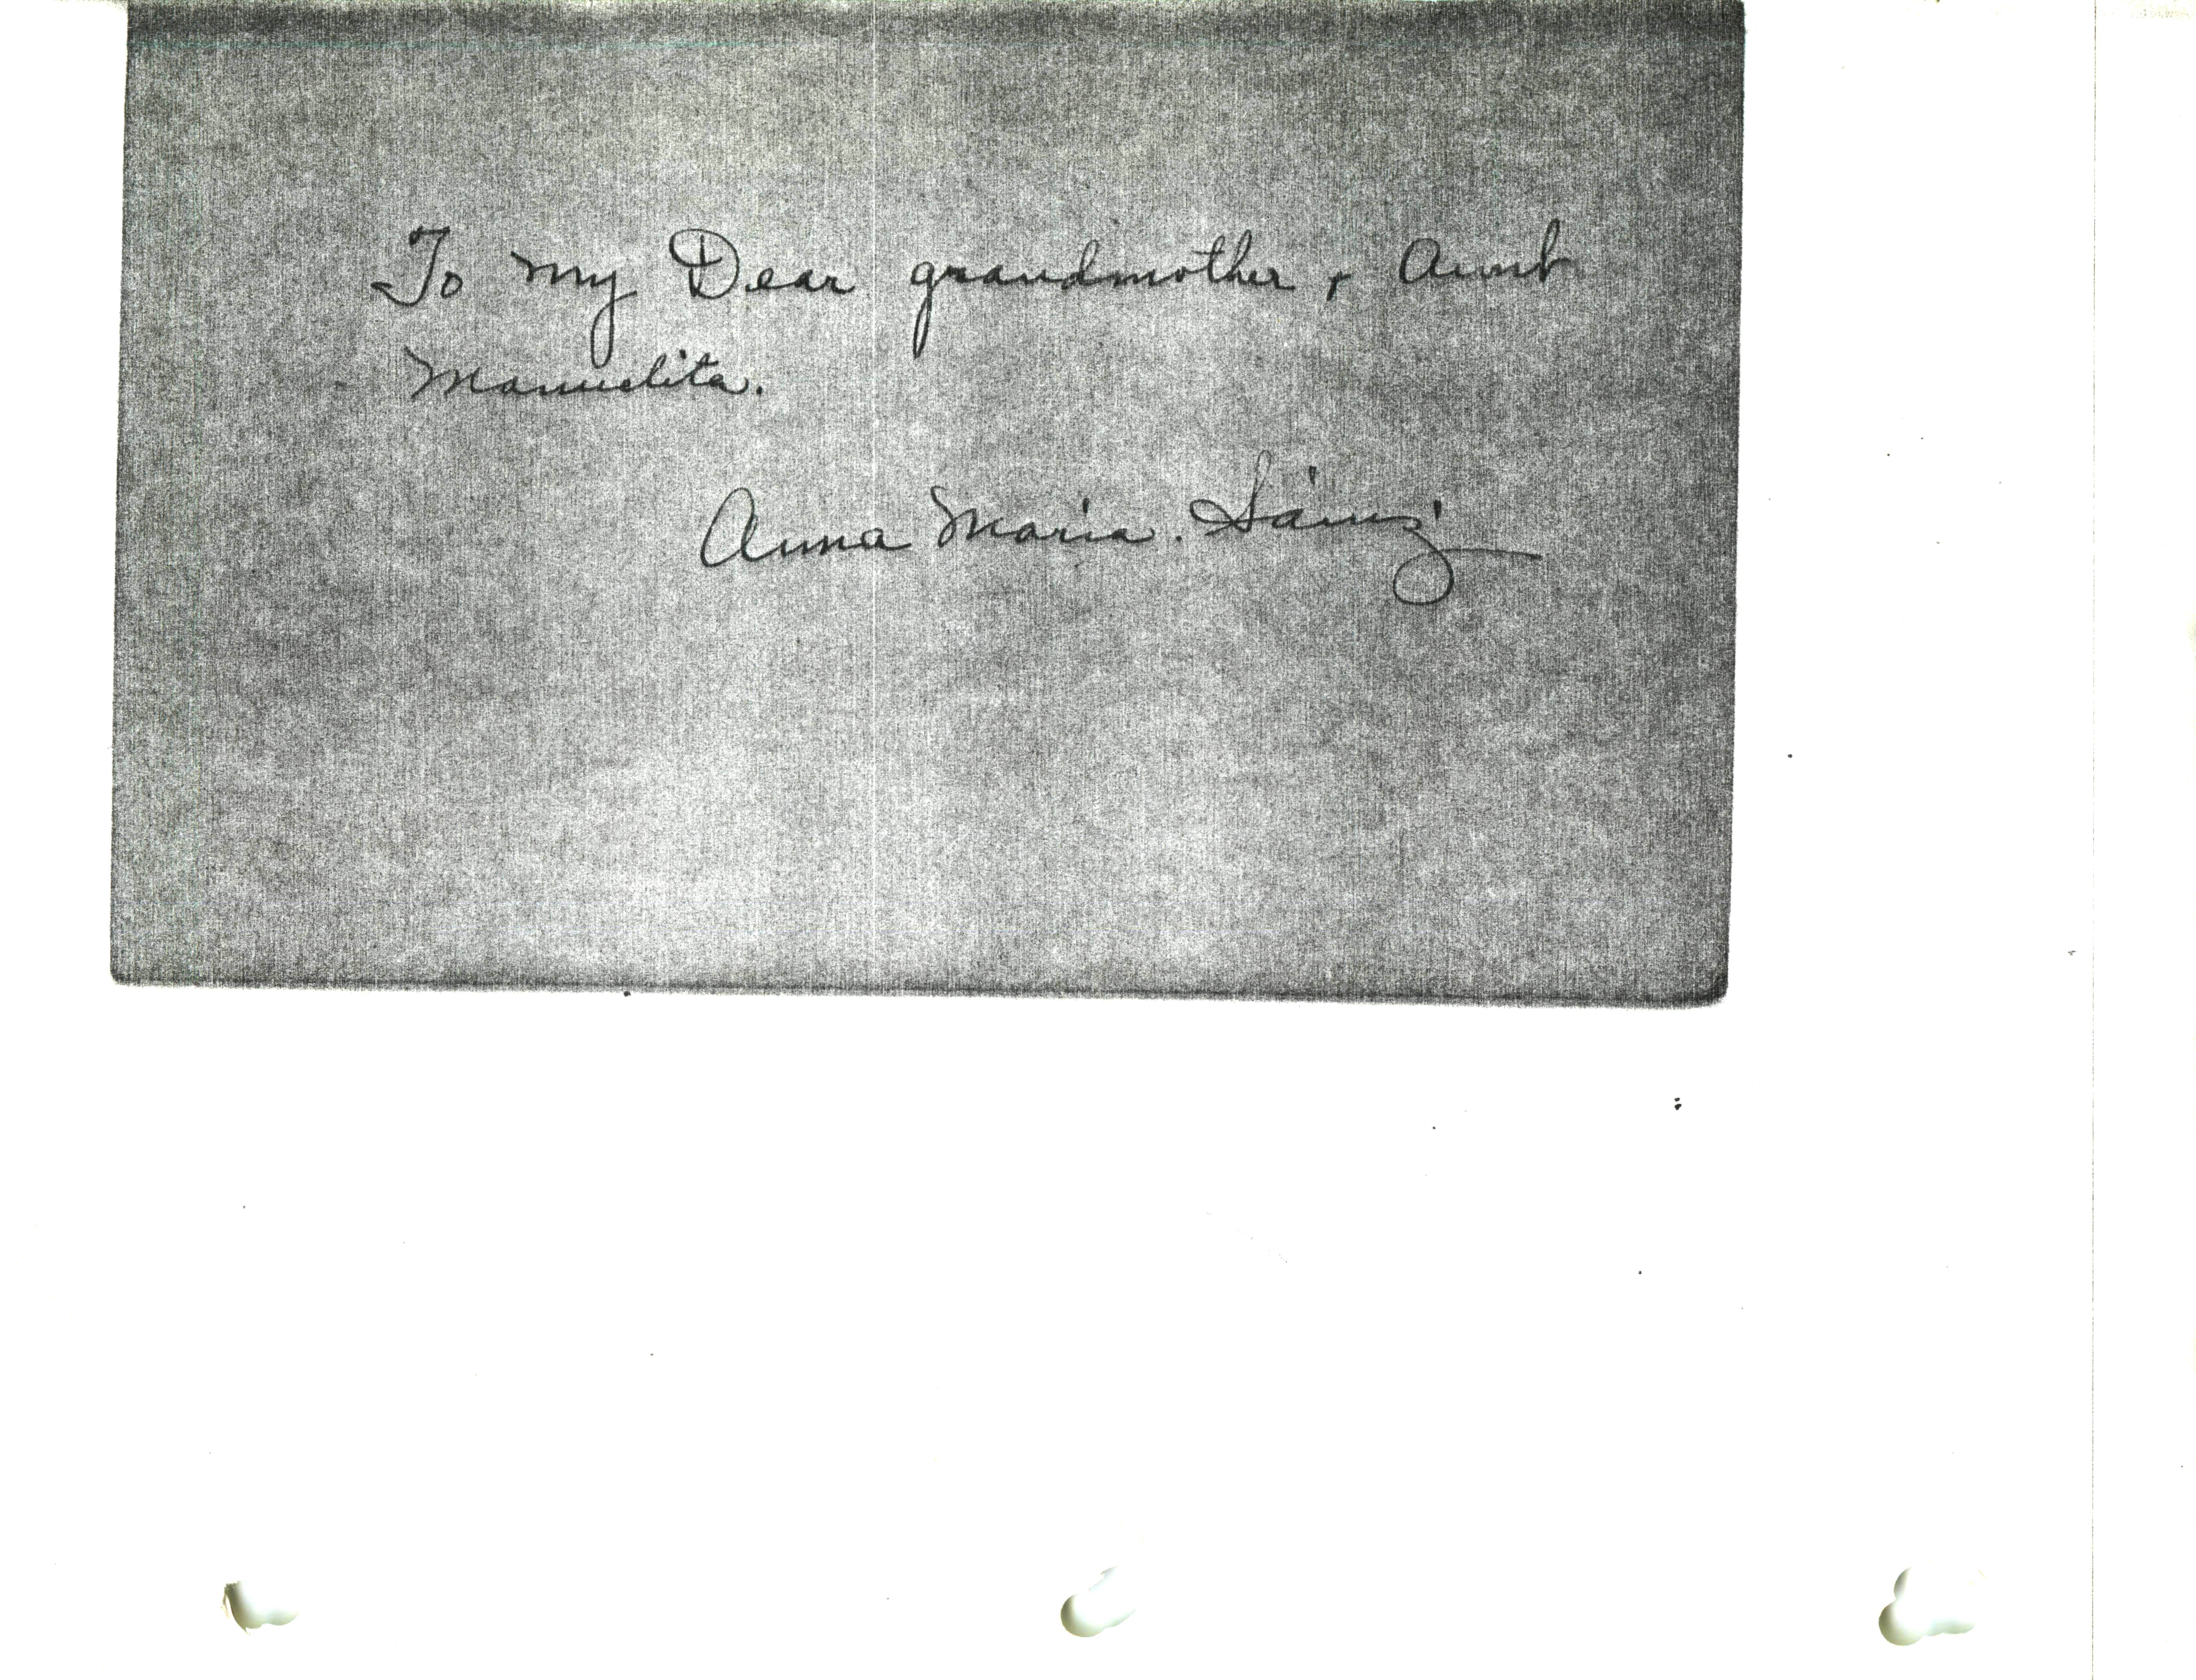 To my Dear grandmother, & Aunt
Manuelita.
Anna Maria. Sáinz